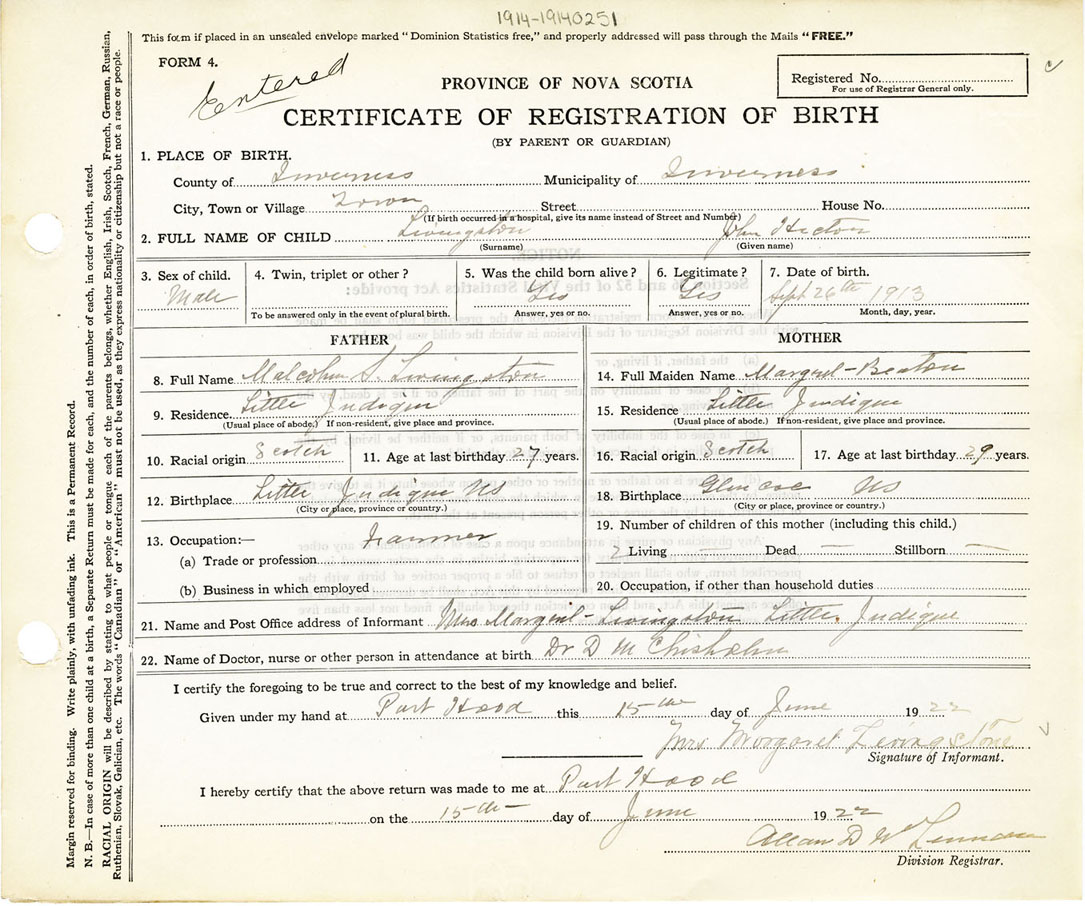 1914-19140251
This form if placed in an unsealed envelope marked "Dominion Statistics free," and properly addressed will pass through the Mails "FREE."
FORM 4.
Entered
PROVINCE OF NOVA SCOTIA
Registered No.
For use of Registrar General only.
CERTIFICATE OF REGISTRATION OF BIRTH
(BY PARENT OR GUARDIAN)
1. PLACE OF BIRTH.
County of Inverness Municipality of Inverness
City, Town or Village Town Street House No.
(If birth occurred in a hospital, give its name instead of Street and Number)
2. FULL NAME OF CHILD Livingston John Hector
(Surname) (Given name)
3. Sex of child. Male
4. Twin, triplet or other?
To be answered only in the event of plural birth.
5. Was the child born alive? Yes
Answer, yes or no.
6. Legitimate? Yes
Answer, yes or no.
7. Date of birth. Sept 26th 1913
Month, day, year.
FATHER
8. Full Name Malcolm S. Livingston
9. Residence Little Judique
(Usual place of abode.) If non-resident, give place and province.
10. Racial origin Scotch 11. Age at last birthday 27 years.
12. Birthplace Little Judique NS
(City or place, province or country.)
13. Occupation:— Farmer
(a) Trade or profession
(b) Business in which employed
MOTHER
14. Full Maiden Name Margret Beaton
15. Residence Little Judique
(Usual place of abode.) If non-resident, give place and province.
16. Racial origin Scotch 17. Age at last birthday 29 years.
18. Birthplace Glencoe NS
(City or place, province or country.)
19. Number of children of this mother (including this child.)
2 Living — Dead — Stillborn —
20. Occupation, if other than household duties
21. Name and Post Office address of Informant Mrs Livingston Little Judique
22. Name of Doctor, nurse or other person in attendance at birth Dr D M Chisholm
I certify the foregoing to be true and correct to the best of my knowledge and belief.
Given under my hand at Port Hood this 15th day of June 1922
Mrs Morgaret Livingstone
Signature of Informant.
I hereby certify that the above return was made to me at Port Hood
on the 15th day of June 1922
Allan D
Division Registrar.
Margin reserved for binding. Write plainly, with unfading ink. This is a Permanent Record.
N. B.—In case of more than one child at a birth, a Separate Return must be made for each, and the number of each, in order of birth, stated.
RACIAL ORIGIN will be described by stating to what people or tongue each of the parents belongs, whether English, Irish, Scotch, French, German, Russian,
Ruthenian, Slovak, Galician, etc. The words "Canadian" or "American" must not be used, as they express nationality or citizenship but not a race or people.